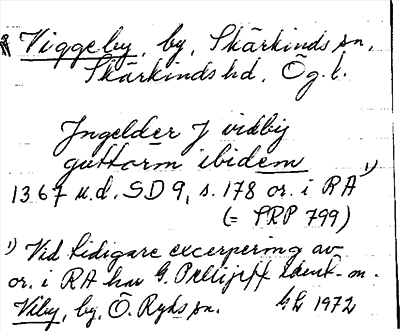 Viggeby, by, Skärkinds sn,
Skärkinds hd, Ög. l.
Jngelder J vidby
guttorm ibidem 1)
1367 u.d. SD 9, s. 178 or. i RA
(= PRP 799)
1) Vid tidigare excerpering av
or. i RA har G. Prellijeff ident. m.
Viby, by, Ö. Ryds sn.
GL 1972